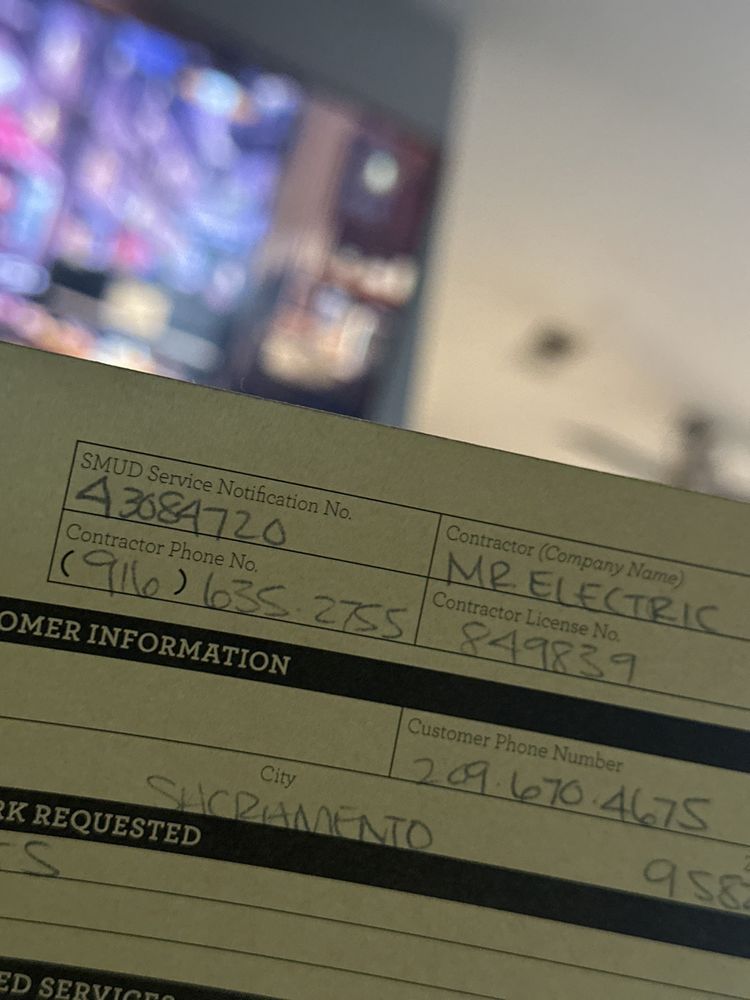 SMUD Service Notification No.
43084720
Contractor (Company Name)
MR ELECTRIC
Contractor Phone No.
(916) 635.2755
Contractor License No.
849839
OMER INFORMATION
Customer Phone Number
209.670.4675
City
SACRAMENTO
958
RK REQUESTED
ED SERVICES